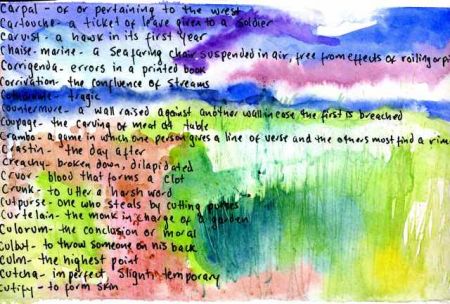 Carpal - of or pertaining to the wrest
Cartouche - a ticket of leave given to a soldier
Caruist - a hawk in its first year
Chaise-marine - a seafaring chair suspended in air, free from effects of roiling or pi
Corrigenda - errors in a printed book
Corrivation - the confluence of streams
- tragic
Countermure - a wall raised against another wall in case the first is breached
Coupage - the carving of meat at table
Crambo - a game in which one person gives a line of verse and the others most find a rime
Crastin - the day after
Creachy - broken down, dilapidated
Cruor - blood that forms a clot
Crunk - to utter a harsh word
Cutpurse - one who steals by cutting purses
Curtelain - the monk in charge of a garden
Culorum - the conclusion or moral
Culbut - to throw someone on his back
Culm - the highest point
Cutcha - imperfect, slight, temporary
Cutify - to form skin